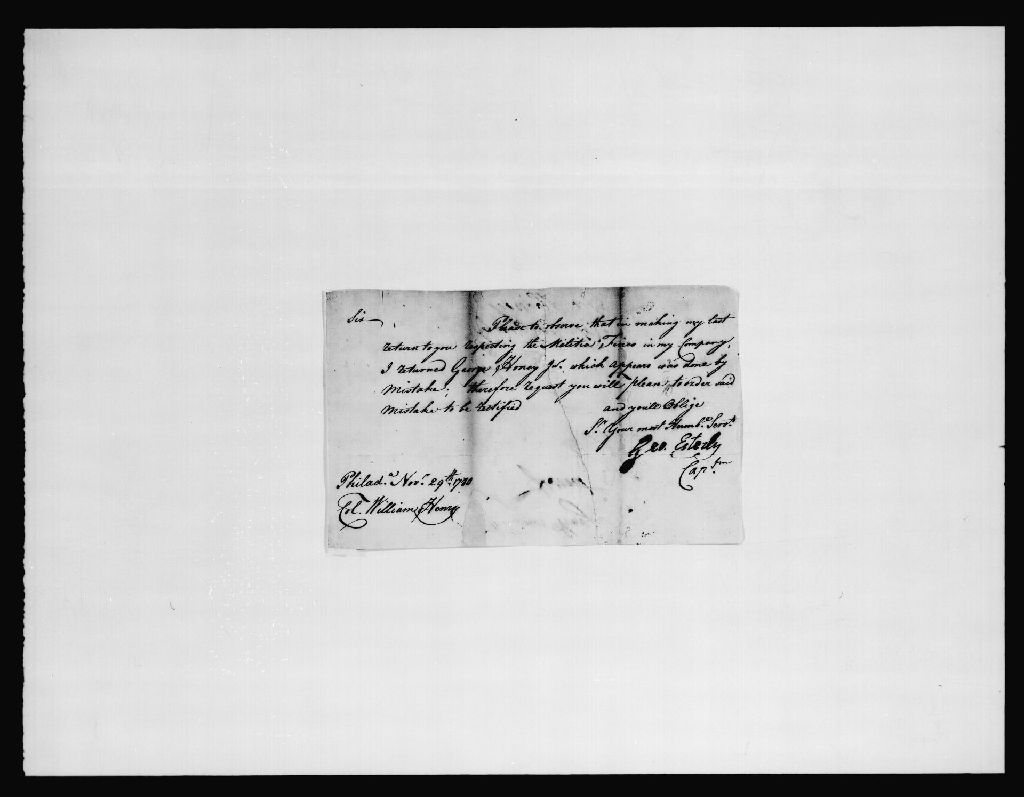 Sir
Please to observe, that in making my last
return to you respecting the Melitia Fines in my Company,
I returned George Honey Jr. which appears was done by
Mistake; therefore request you will please to order said
Mistake to be rectified
and you'll Oblige
Sr. Your most Humbe. Servt.
Geo. Esterly
Captn.
Philada. Novr. 29th. 1780
Col. William Henry